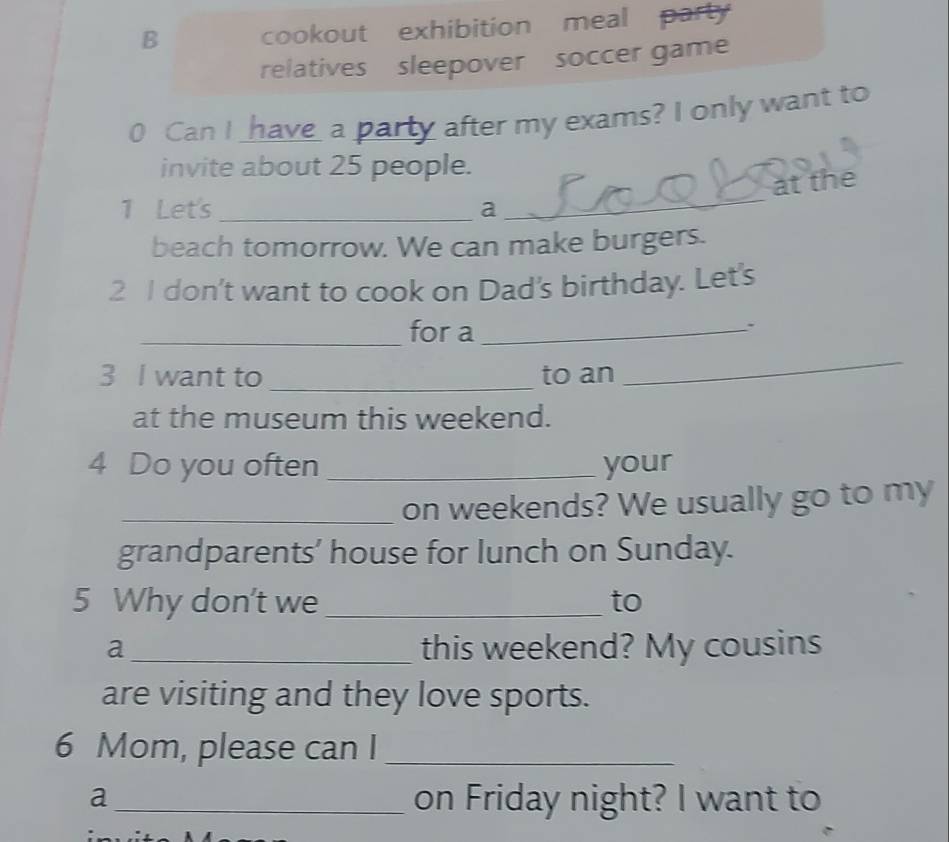 B cookout exhibition meal party
relatives sleepover soccer game
0 Can I have a party after my exams? I only want to
invite about 25 people.
1 Let's ____________ a ____________ at the
beach tomorrow. We can make burgers.
2 I don't want to cook on Dad's birthday. Let's
____________ for a ____________.
3 I want to ____________ to an ____________
at the museum this weekend.
4 Do you often ____________ your
____________ on weekends? We usually go to my
grandparents' house for lunch on Sunday.
5 Why don't we ____________ to
a ____________ this weekend? My cousins
are visiting and they love sports.
6 Mom, please can I ____________
a ____________ on Friday night? I want to